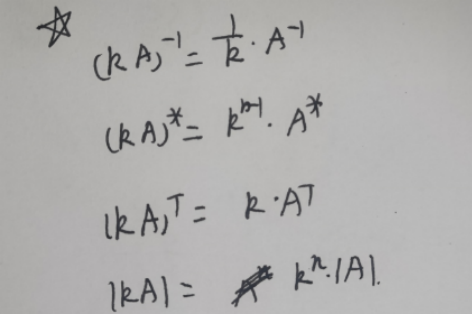 ☆ (kA)⁻¹ = 1/k · A⁻¹
(kA)* = kⁿ⁻¹ · A*
(kA)ᵀ = k · Aᵀ
|kA| = kⁿ · |A|.